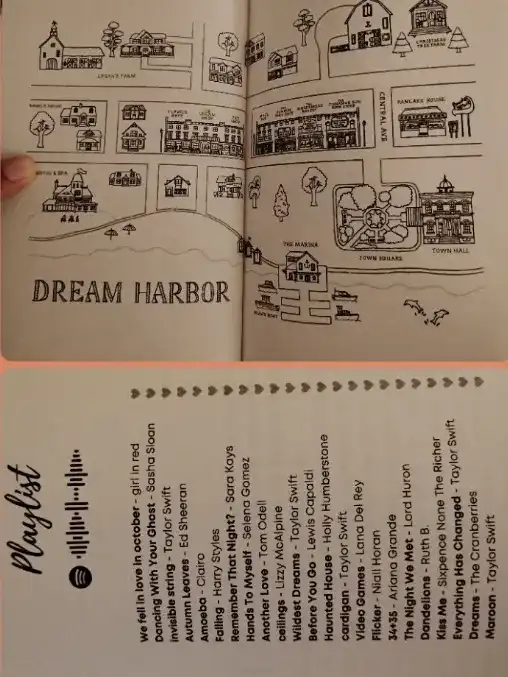 LOGAN'S FARM
CHRISTMAS
TREE FARM
CENTRAL AVE
PANCAKE HOUSE
THE MARINA
TOWN SQUARE
TOWN HALL
DREAM HARBOR
Playlist
We fell in love in october - girl in red
Dancing With Your Ghost - Sasha Sloan
invisible string - Taylor Swift
Autumn Leaves - Ed Sheeran
Amoeba - Clairo
Falling - Harry Styles
Remember That Night? - Sara Kays
Hands To Myself - Selena Gomez
Another Love - Tom Odell
ceilings - Lizzy McAlpine
Wildest Dreams - Taylor Swift
Before You Go - Lewis Capaldi
Haunted House - Holly Humberstone
cardigan - Taylor Swift
Video Games - Lana Del Rey
Flicker - Niall Horan
34+35 - Ariana Grande
The Night We Met - Lord Huron
Dandelions - Ruth B.
Kiss Me - Sixpence None The Richer
Everything Has Changed - Taylor Swift
Dreams - The Cranberries
Maroon - Taylor Swift